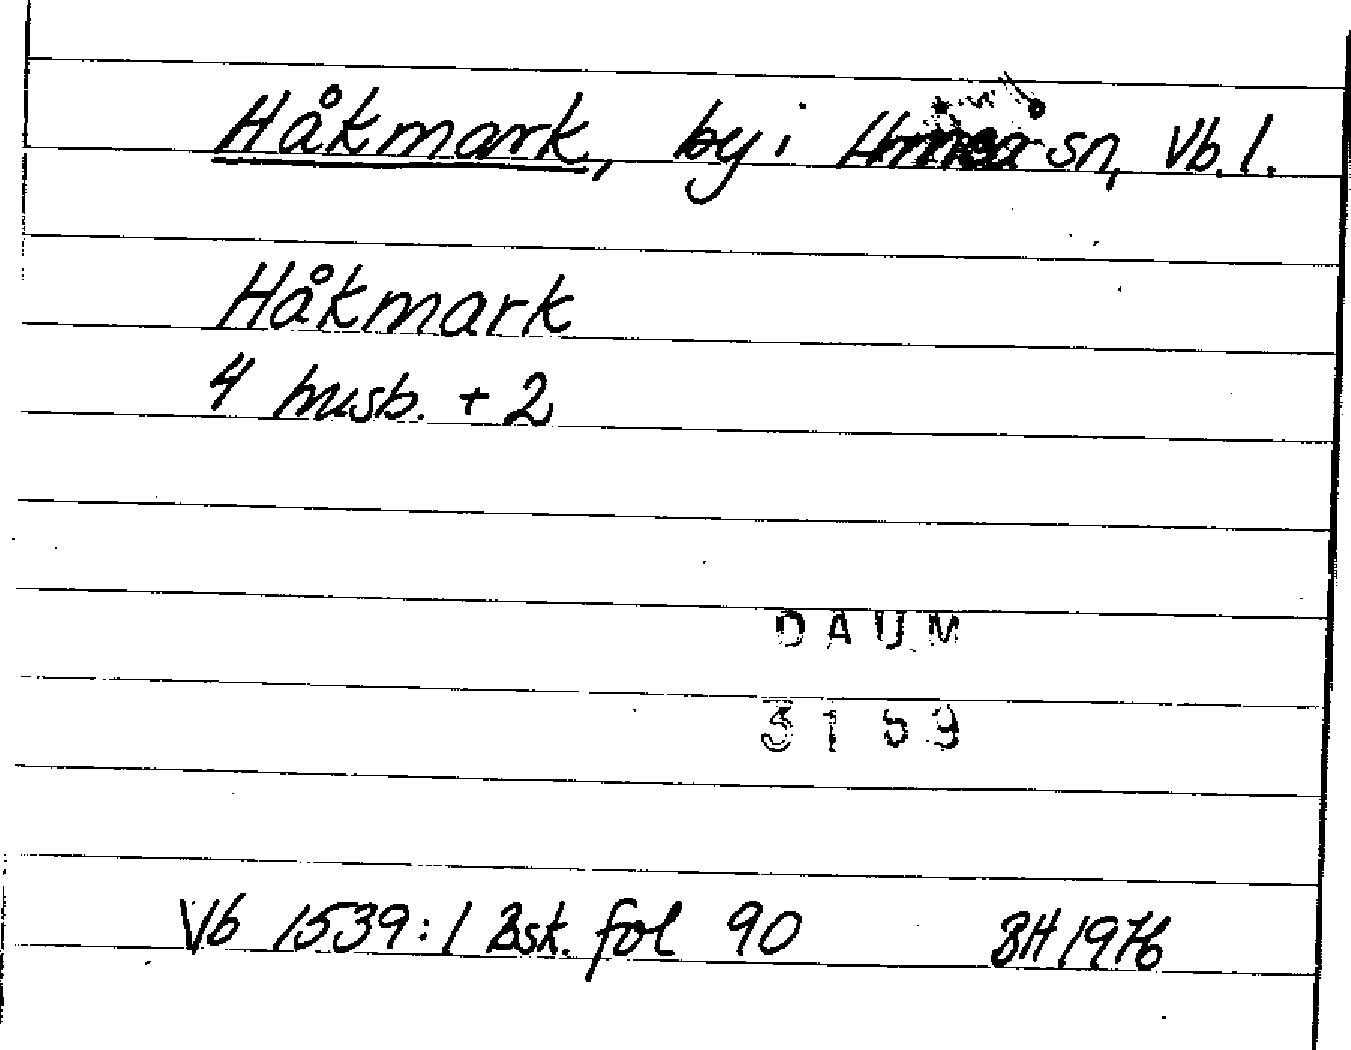 Håkmark, by i Umeå sn, Vb. l.
Håkmark
4 husb. + 2
DAUM
3159
Vb 1539:1 Bsk. fol 90 BH 1976